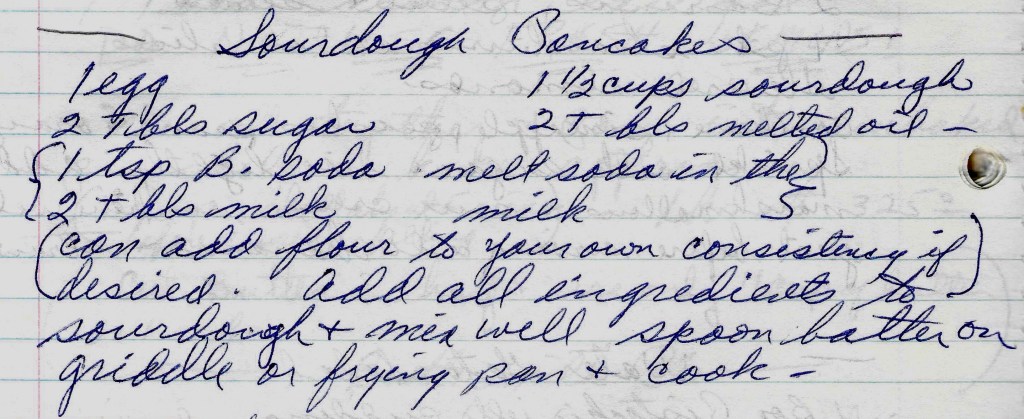 Sourdough Pancakes
1 egg 1 1/2 cups sourdough
2 Tbls sugar 2 T bls melted oil -
{1 tsp B. soda melt soda in the}
{2 T bls milk milk
(can add flour to your own consistency if)
desired. Add all ingredients to
sourdough + mix well spoon batter on
griddle or frying pan + cook -